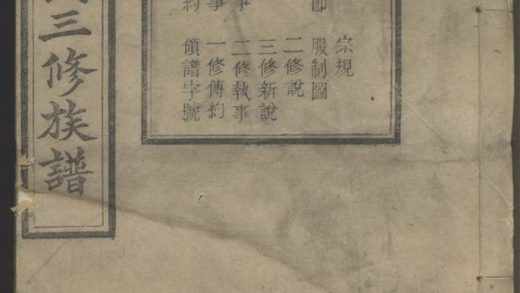 宗規
服制圖
二修說
三修新說
事 二修執事
事 一修傳約
約 領譜字號
三修族譜